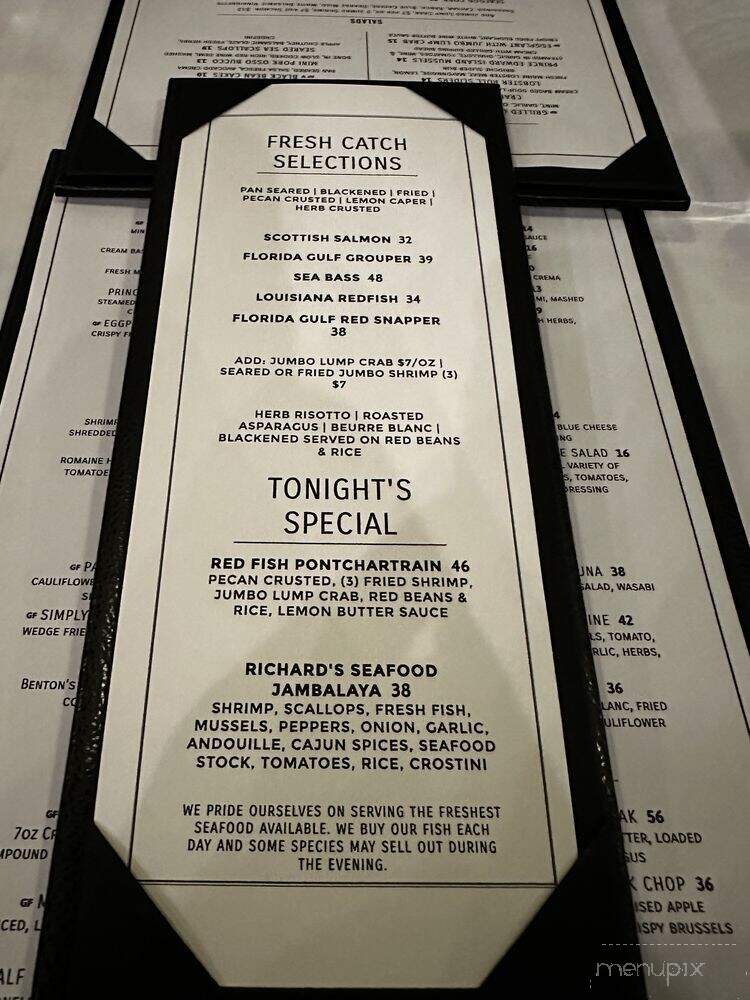 FRESH CATCH
SELECTIONS
PAN SEARED | BLACKENED | FRIED |
PECAN CRUSTED | LEMON CAPER |
HERB CRUSTED
SCOTTISH SALMON 32
FLORIDA GULF GROUPER 39
SEA BASS 48
LOUISIANA REDFISH 34
FLORIDA GULF RED SNAPPER
38
ADD: JUMBO LUMP CRAB $7/OZ |
SEARED OR FRIED JUMBO SHRIMP (3)
$7
HERB RISOTTO | ROASTED
ASPARAGUS | BEURRE BLANC |
BLACKENED SERVED ON RED BEANS
& RICE
TONIGHT'S
SPECIAL
RED FISH PONTCHARTRAIN 46
PECAN CRUSTED, (3) FRIED SHRIMP,
JUMBO LUMP CRAB, RED BEANS &
RICE, LEMON BUTTER SAUCE
RICHARD'S SEAFOOD
JAMBALAYA 38
SHRIMP, SCALLOPS, FRESH FISH,
MUSSELS, PEPPERS, ONION, GARLIC,
ANDOUILLE, CAJUN SPICES, SEAFOOD
STOCK, TOMATOES, RICE, CROSTINI
WE PRIDE OURSELVES ON SERVING THE FRESHEST
SEAFOOD AVAILABLE. WE BUY OUR FISH EACH
DAY AND SOME SPECIES MAY SELL OUT DURING
THE EVENING.
SALADS
SEARED SEA SCALLOPS 19
MINI PORK OSSO BUCCO 13
BLACK BEAN CAKES 10
EGGPLANT WITH JUMBO LUMP CRAB 15
PRINCE EDWARD ISLAND MUSSELS 14
LOBSTER ROLL SLIDERS 14
CREAM BAS
FRESH M
PRINC
STEAMED
GF EGGP
CRISPY F
SHRIM
SHREDDED
ROMAINE H
TOMATOE
GF PA
CAULIFLOWE
GF SIMPLY
WEDGE FRIE
BENTON'S
7OZ
MPOUND
ALF
SAUCE
CREMA
MI, MASHED
H HERBS,
BLUE CHEESE
NG
E SALAD 16
VARIETY OF
S, TOMATOES,
DRESSING
UNA 38
SALAD, WASABI
INE 42
LS, TOMATO,
RLIC, HERBS,
36
LANC, FRIED
ULIFLOWER
AK 56
TTER, LOADED
GUS
K CHOP 36
ISED APPLE
ISPY BRUSSELS
menupix